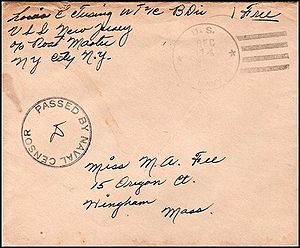 Louis E Tusing WT2c B Div
Free
U S S New Jersey
c/o Post Master
N Y City N.Y.
U. S.
DEC
PASSED BY NAVAL CENSOR
Miss M. A. Fee
15 Oregon Ct.
Wingham
Mass.